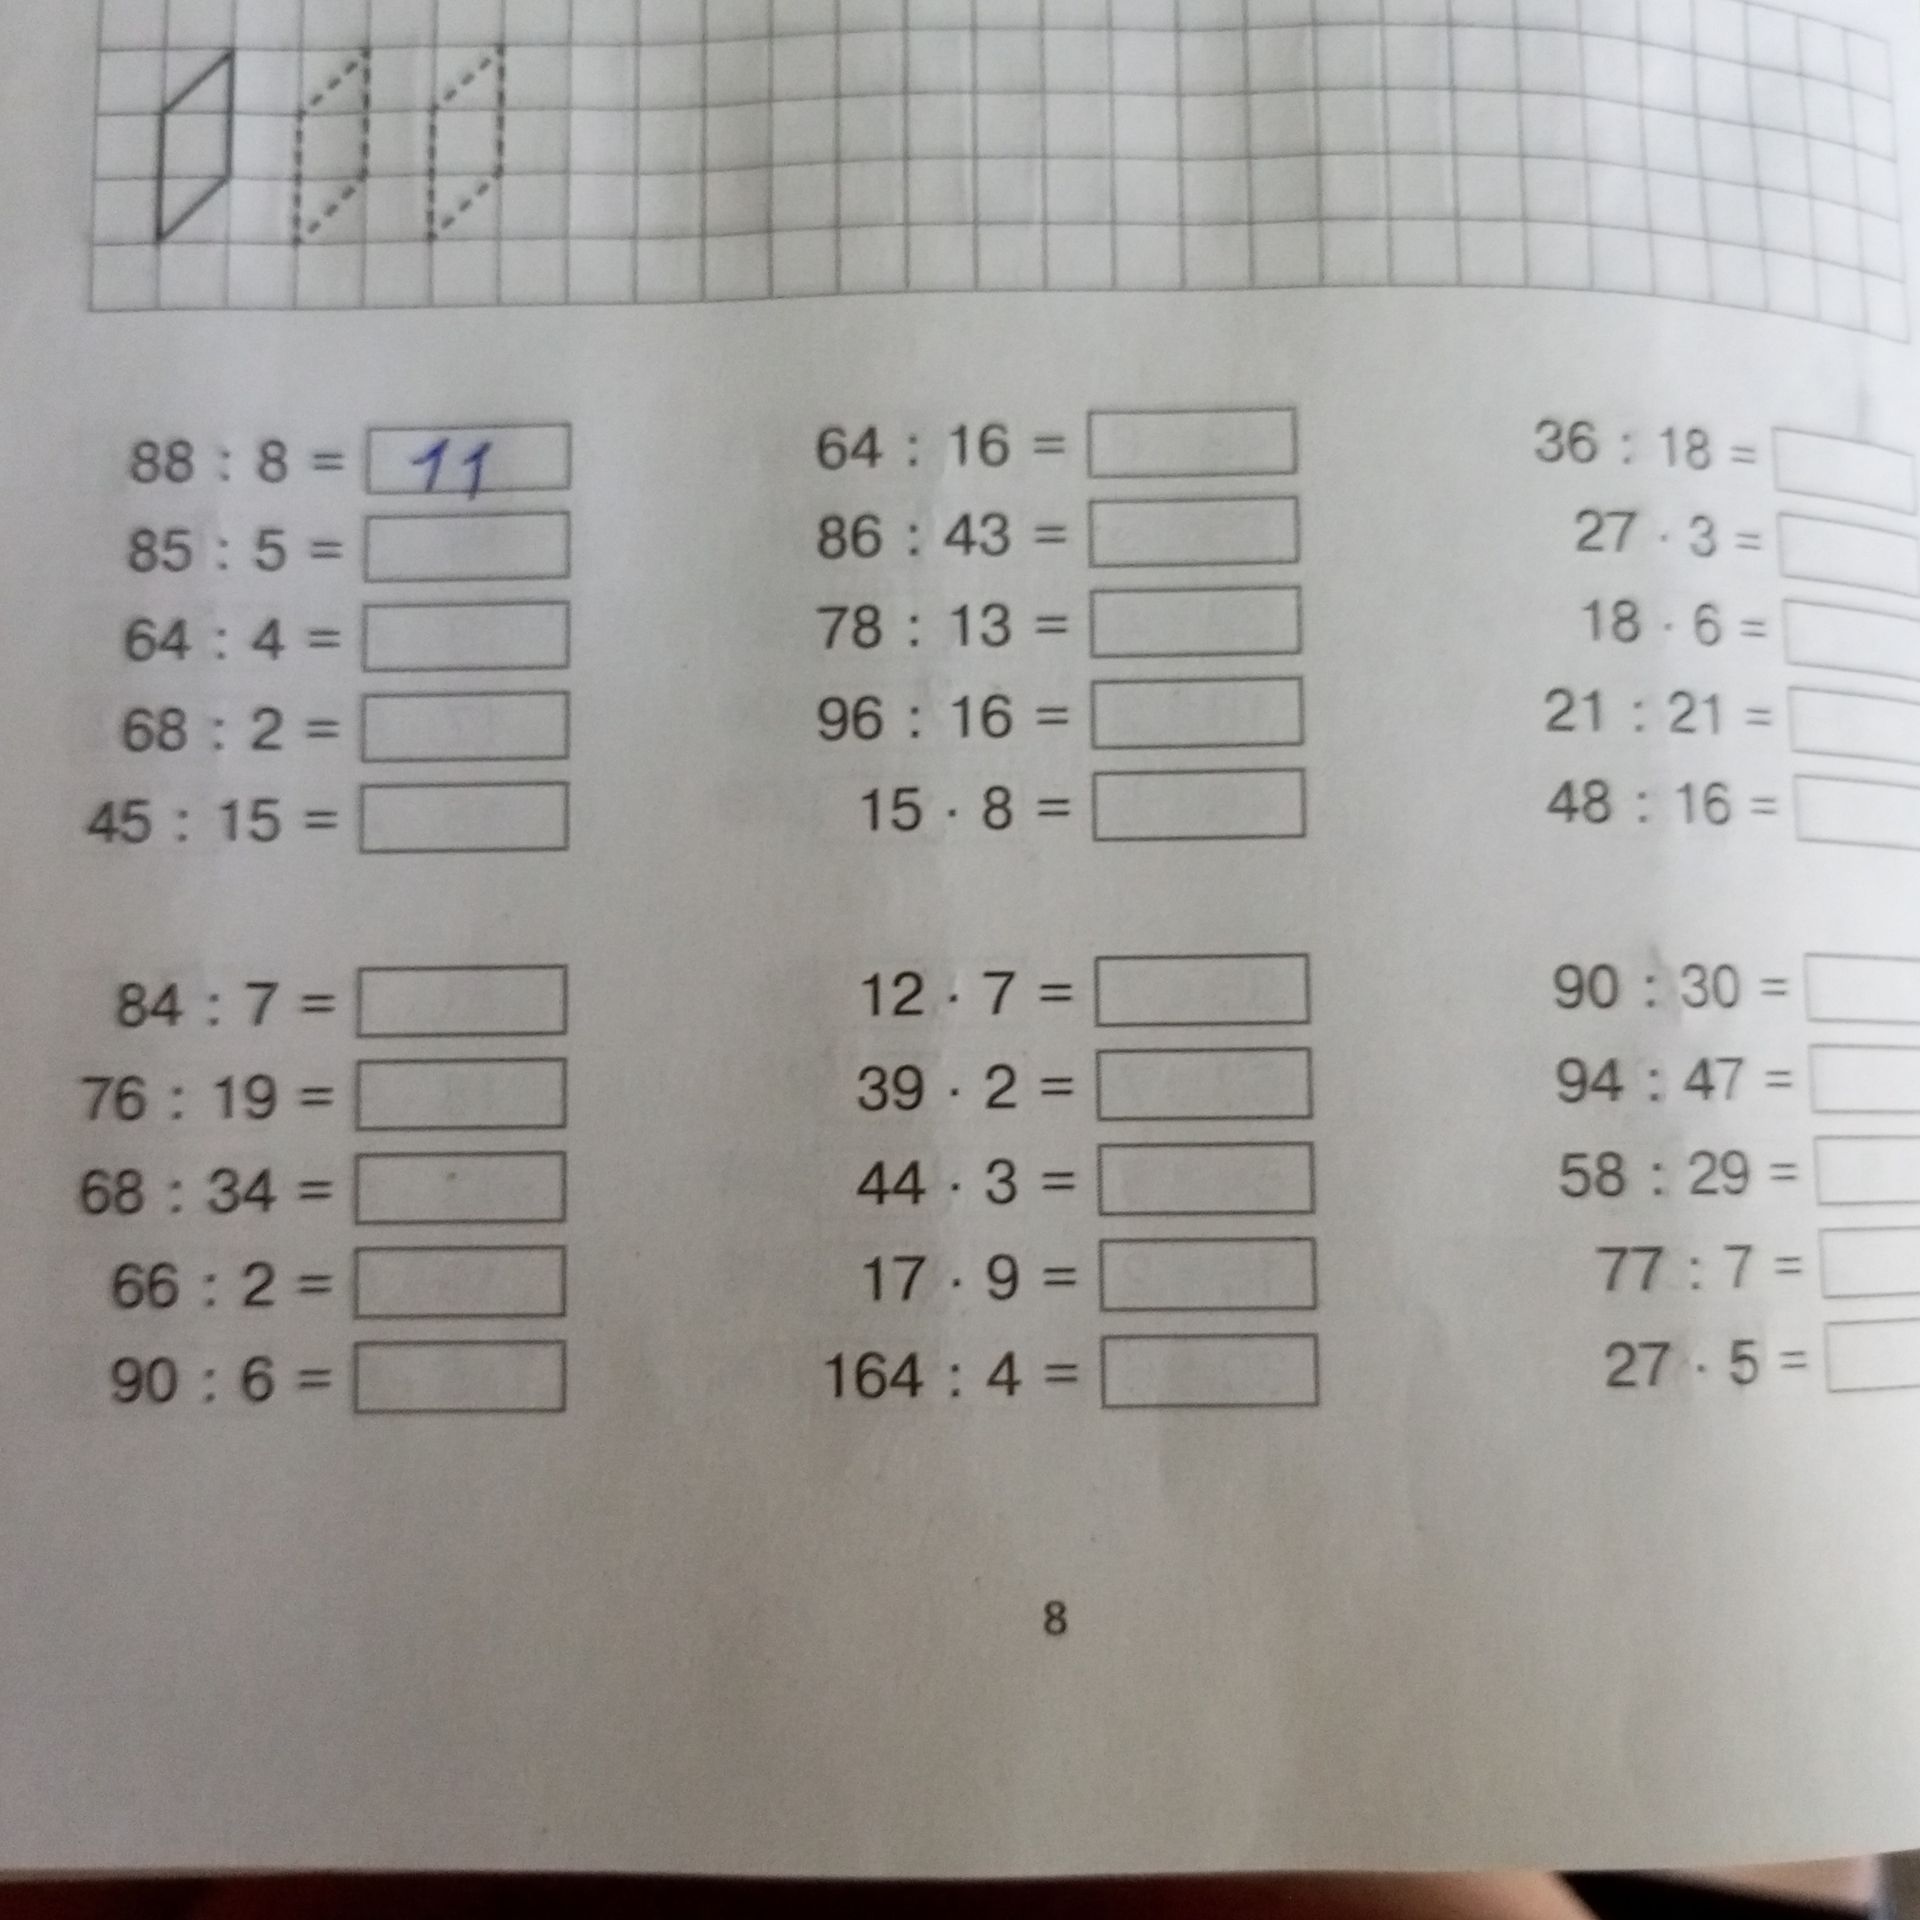 88 : 8 = 11
85 : 5 =
64 : 4 =
68 : 2 =
45 : 15 =
64 : 16 =
86 : 43 =
78 : 13 =
96 : 16 =
15 · 8 =
36 : 18 =
27 · 3 =
18 · 6 =
21 : 21 =
48 : 16 =
84 : 7 =
76 : 19 =
68 : 34 =
66 : 2 =
90 : 6 =
12 · 7 =
39 · 2 =
44 · 3 =
17 · 9 =
164 : 4 =
90 : 30 =
94 : 47 =
58 : 29 =
77 : 7 =
27 · 5 =
8